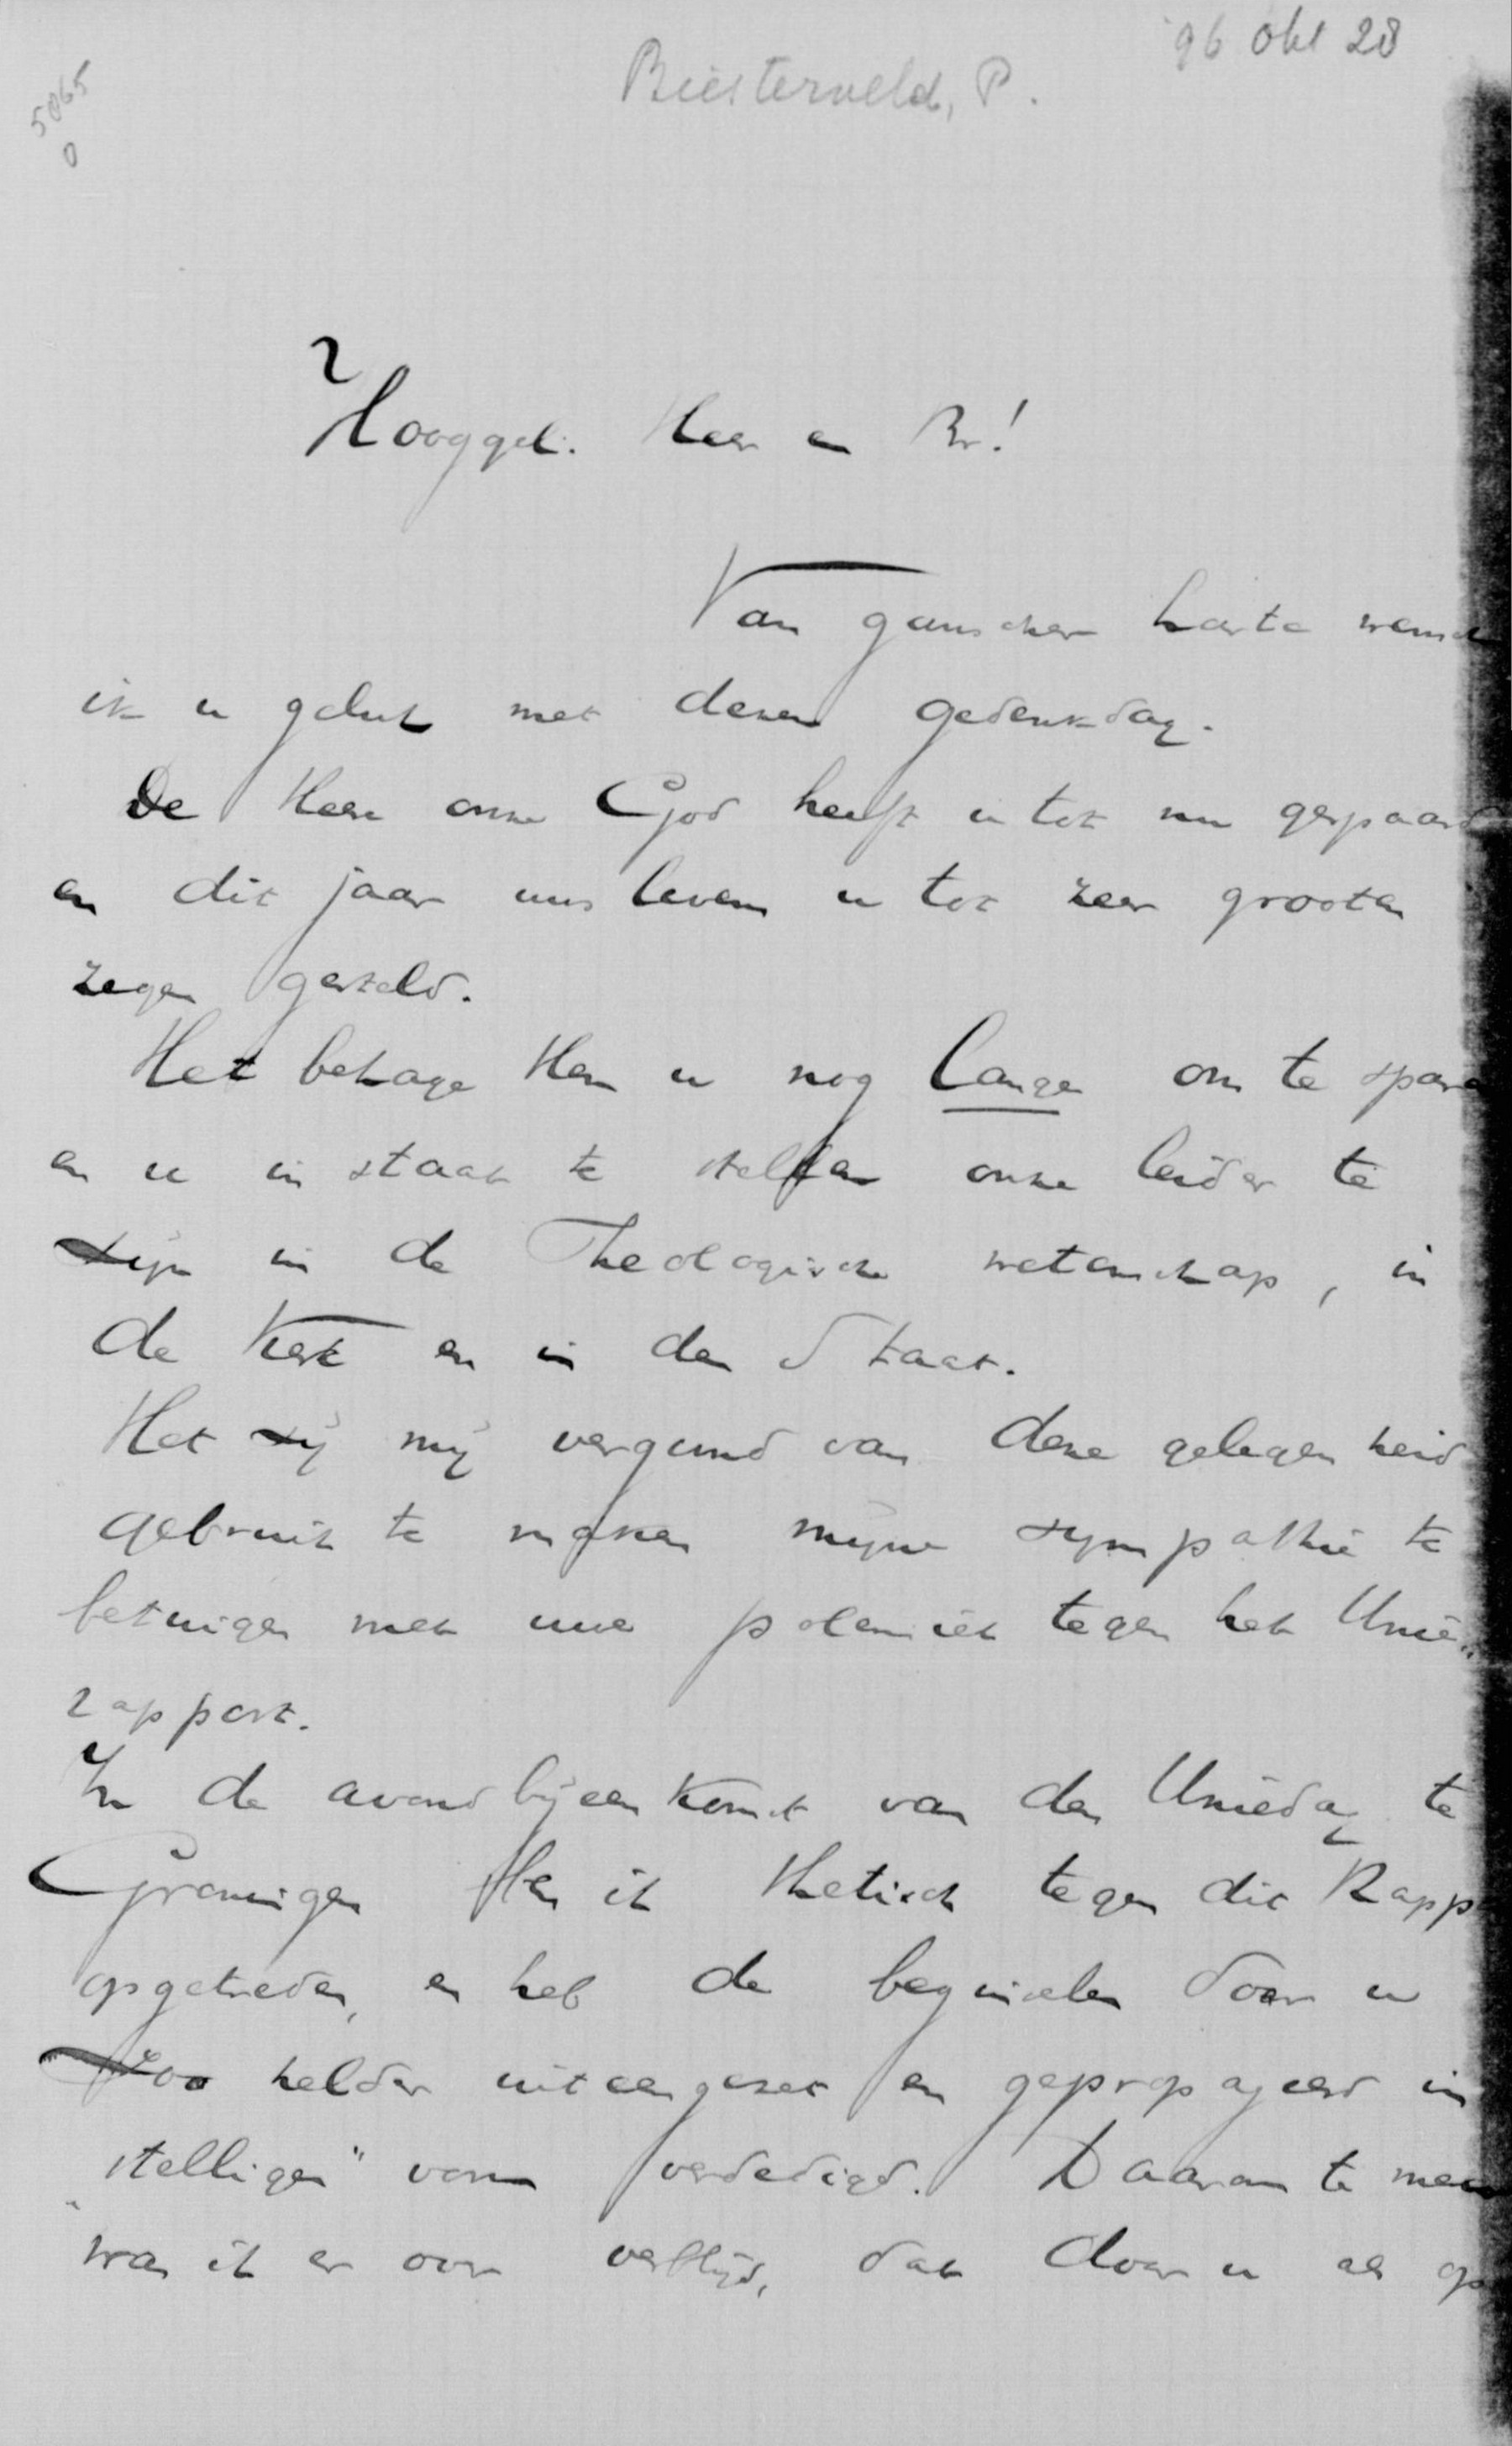 '96 Okt 28
Biesterveld, P.
5065
0
Hooggel. Heer en Br!
Van ganscher harte wensch
ik u geluk met dezen gedenkdag.
De Heere onze God heeft u tot nu gespaard
en dit jaar uws levens u tot zeer grooten
zegen gesteld.
Het behage Hem u nog lange om te sparen
en u in staat te stellen onze leider te
zijn in de Theologische wetenschap, in
de Kerk en in den Staat.
Het zij mij vergund van deze gelegenheid
gebruik te maken mijne sympathie te
betuigen met uwe polemiek tegen het Unie-
rapport.
In de avondbijeenkomst van den Uniedag te
Groningen ben ik thetisch tegen dit Rapp
opgetreden, en heb de beginselen door u
zoo helder uiteengezet en gepropageerd in
"stelligen" vorm verdedigd. Daarom te meer
was ik er over verblijd, dat door u er op